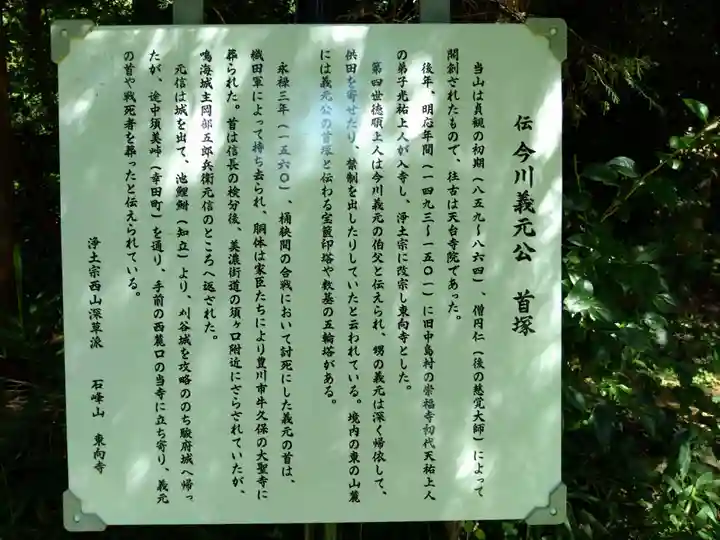 伝 今川義元公 首塚
当山は貞観の初期（八五九〜八六四）、僧円仁（後の慈覚大師）によって
開創されたもので、往古は天台寺院であった。
後年、明応年間（一四九三〜一五〇一）に旧中島村の崇福寺初代天祐上人
の弟子北祐上人が入寺し、浄土宗に改宗し東向寺とした。
第四世徳順上人は今川義元の伯父と伝えられ、甥の義元は深く帰依して、
供田を寄せたり、禁制を出したりしていたと云われている。境内の東の山麓
には義元公の首塚と伝わる宝篋印塔や数基の五輪塔がある。
永禄三年（一五六〇）、桶狭間の合戦において討死にした義元の首は、
織田軍によって持ち去られ、胴体は家臣たちにより豊川市牛久保の大聖寺に
葬られた。首は信長の検分後、美濃街道の須ヶ口附近にさらされていたが、
鳴海城主岡部五郎兵衛元信のところへ返された。
元信は城を出て、池鯉鮒（知立）より、刈谷城を攻略ののち駿府城へ帰っ
たが、途中須美峠（幸田町）を通り、手前の西麓口の当寺に立ち寄り、義元
の首や戦死者を葬ったと伝えられている。
浄土宗西山深草派 石峰山 東向寺